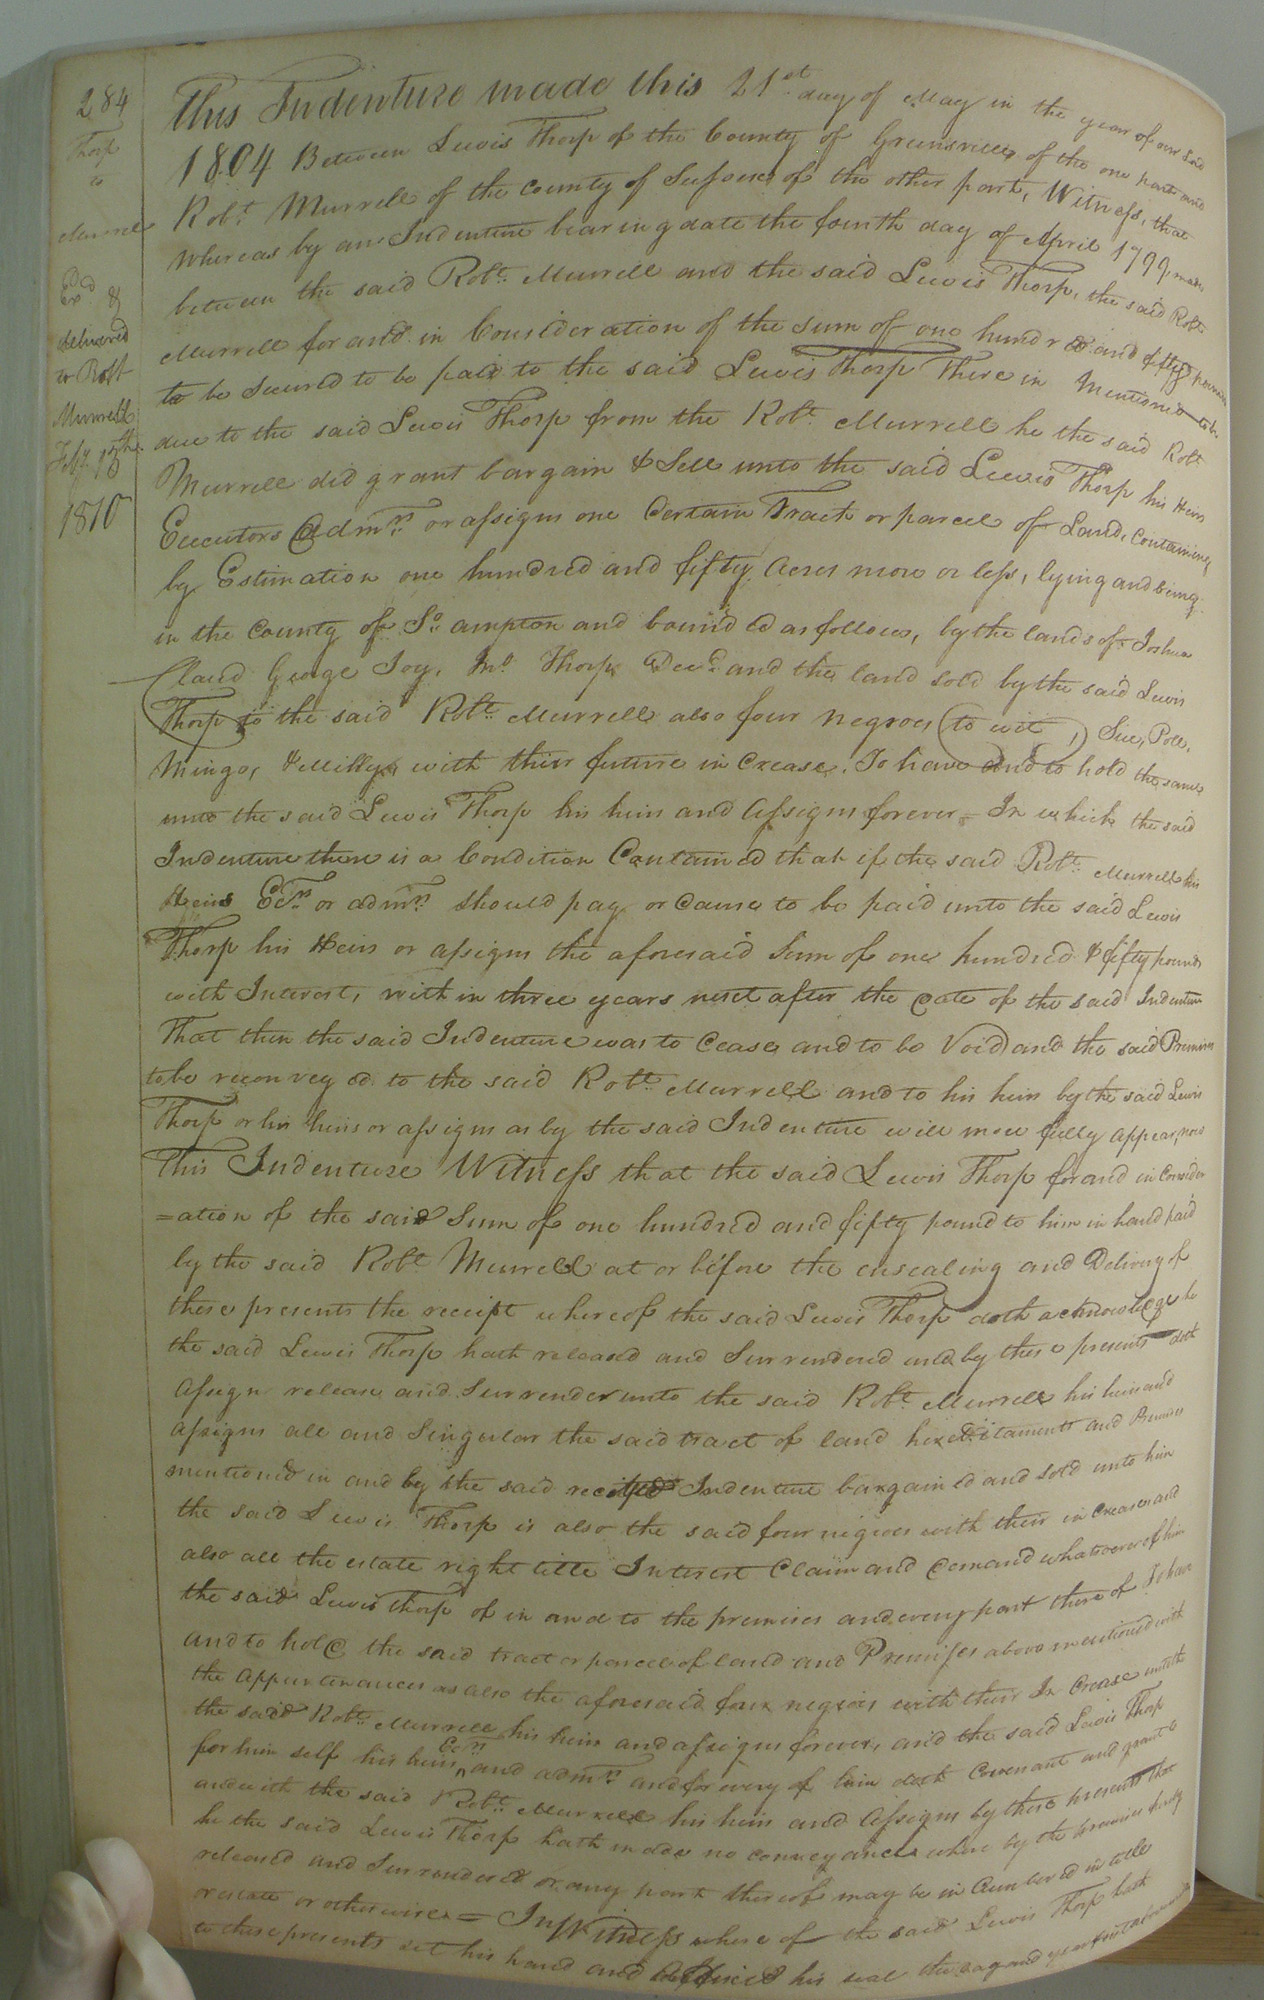 284
Thorp
to
Murrell
Exd. &
delivered
to Robt
Murrell
Feby. 13th
1810
This Indenture made this 21st. day of May in the year of our Lord
1804 Between Lewis Thorp of the County of Greensville of the one part and
Robt. Murrell of the County of Sussex of the other part, Witness, that
Whereas by an Indenture bearing date the fourth day of April 1799, made
between the said Robt. Murrell and the said Lewis Thorp, the said Robt.
Murrell for and in Consideration of the sum of one hundred and fifty pounds
to be Secured to be paid to the said Lewis Thorp There in Mentioned to be
due to the said Lewis Thorp from the Robt. Murrell he the said Robt.
Murrell did grant bargain & Sell unto the said Lewis Thorp his Heirs
Executors Admrs. or assigns one Certain Tract or parcel of Land, Containing
by Estimation one hundred and fifty Acres more or less, lying and being
in the County of So.ampton and bounded as follows, by the lands of Joshua
Claud George Ivy, Jno. Thorp, Decd. and the land sold by the said Lewis
Thorp to the said Robt. Murrell also four negroes (to wit,) Sue, Poll,
Mingo, & Milly, with their future increase. To have and to hold the same
unto the said Lewis Thorp his heirs and Assigns forever In which the said
Indenture there is a Condition Contained that if the said Robt. Murrell his
Heirs Exrs. or admrs. should pay or Cause to be paid unto the said Lewis
Thorp his Heirs or assigns the aforesaid Sum of one hundred & fifty pounds
with Interest, within three years next after the date of the said Indenture
That then the said Indenture was to Cease and to be Void and the said Premises
to be reconveyed to the said Robt. Murrell and to his heirs by the said Lewis
Thorp or his heirs or assigns as by the said Indenture will more fully appear, now
This Indenture Witness that the said Lewis Thorp for and in Consider
=ation of the said Sum of one hundred and fifty pound to him in hand paid
by the said Robt. Murrell at or before the ensealing and Delivery of
these presents the receipt whereof the said Lewis Thorp doth acknowledge he
the said Lewis Thorp hath released and Surrendered and by these presents doth
Assign release and Surrender unto the said Robt. Murrell his heirs and
assigns all and Singular the said tract of land hereditaments and Premises
mentioned in and by the said recited Indenture bargained and sold unto him
the said Lewis Thorp is also the said four nigroes with their increases and
also all the estate right title Interest Claim and demand whatsoever of him
the said Lewis Thorp of in and to the premises and every part there of To have
and to hold the said tract or parcel of land and Premises above mentioned with
the appurtenances as also the aforesaid four negroes with their In Crease unto the
the said Robt. Murrell his heirs and assigns forever, and the said Lewis Thorp
for him self his heirs Exrs. and admrs. and for every of him doth Covenant and grant to
and with the said Robt. Murrell his heirs and Assigns by these presents that
he the said Lewis Thorp hath made no conveyance where by the premises hereby
released and Surrendered or any part thereof may be in Cumbered in title
or estate or otherwise = In Witness where of the said Lewis Thorp hath
to these presents set his hand and affixed his seal the day and year first above